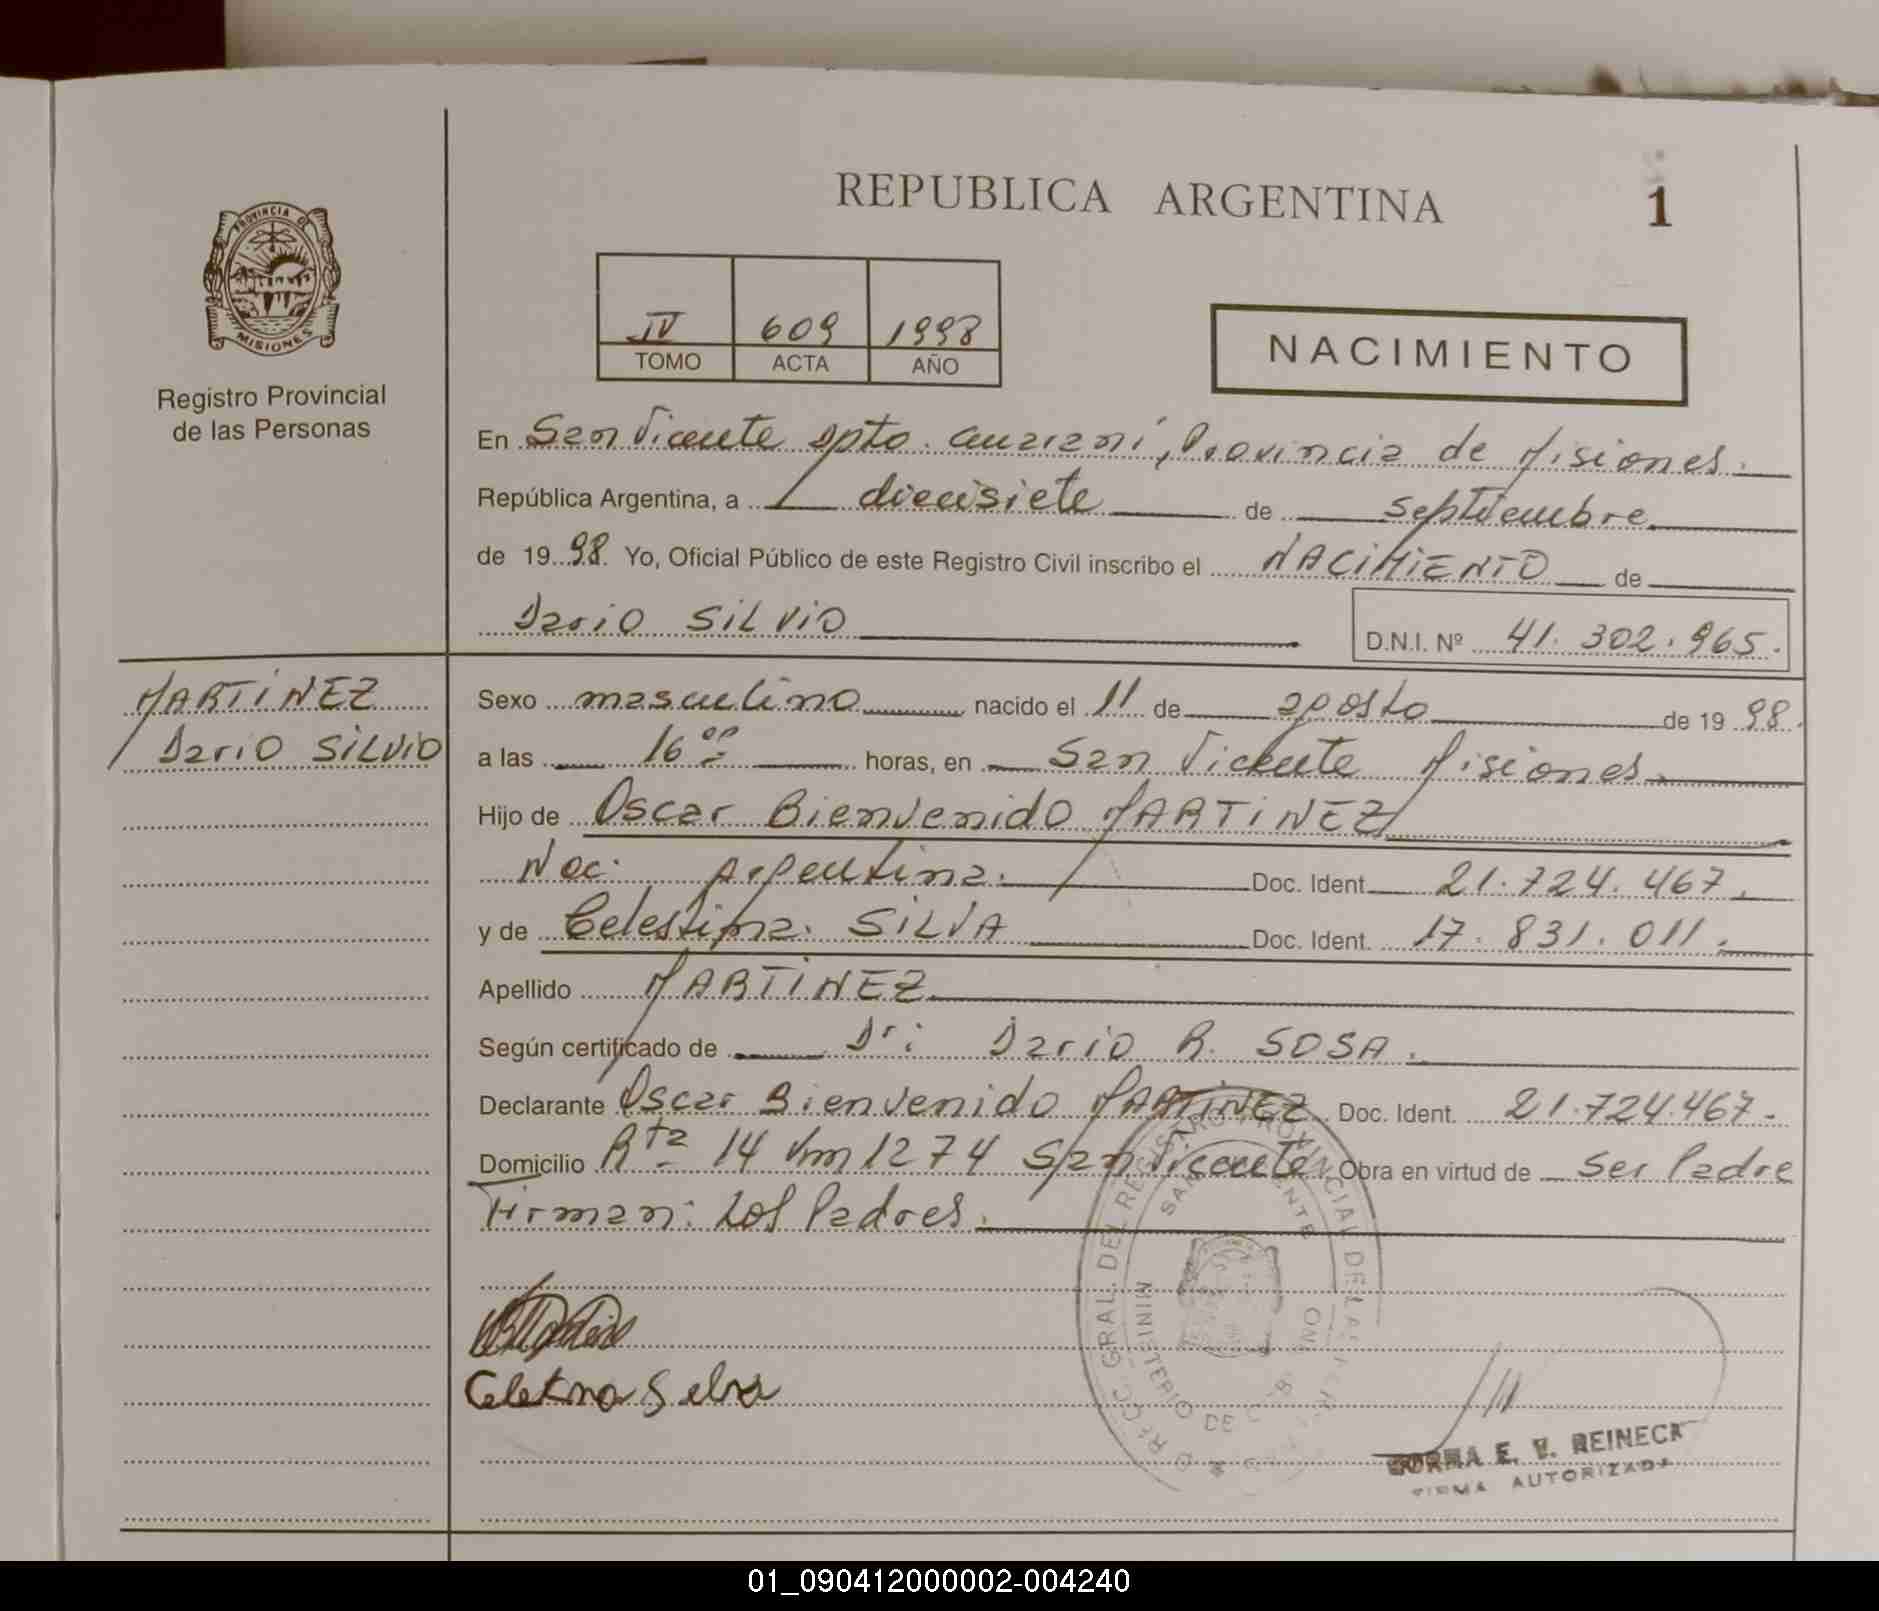 REPUBLICA ARGENTINA
1
PROVINCIA DE
MISIONES
Registro Provincial
de las Personas
IV 609 1998
TOMO ACTA AÑO
NACIMIENTO
En San Vicente Dpto. Guaraní, Provincia de Misiones.
República Argentina, a diecisiete de septiembre
de 19 98. Yo, Oficial Público de este Registro Civil inscribo el NACIMIENTO de
Dario SILVIO
D.N.I. Nº 41.302.965.
MARTINEZ
Dario SILVIO
Sexo masculino nacido el 11 de agosto de 19 98.
a las 16 00 horas, en San Vicente Misiones.
Hijo de Oscar Bienvenido MARTINEZ
Nac. Argentina. Doc. Ident. 21.724.467.
y de Celestina. SILVA Doc. Ident. 17.831.011.
Apellido MARTINEZ
Según certificado de Dr: Dario R. SOSA.
Declarante Oscar Bienvenido MARTINEZ Doc. Ident. 21.724.467-
Domicilio Rta 14 Km 1274 San Vicente Obra en virtud de Ser Padre
Firman: Los Padres.
REGISTRO PROVINCIAL DE LAS
GRAL. DEL
MINISTERIO DE
E. V. REINECK
FIRMA AUTORIZADA
01_090412000002-004240